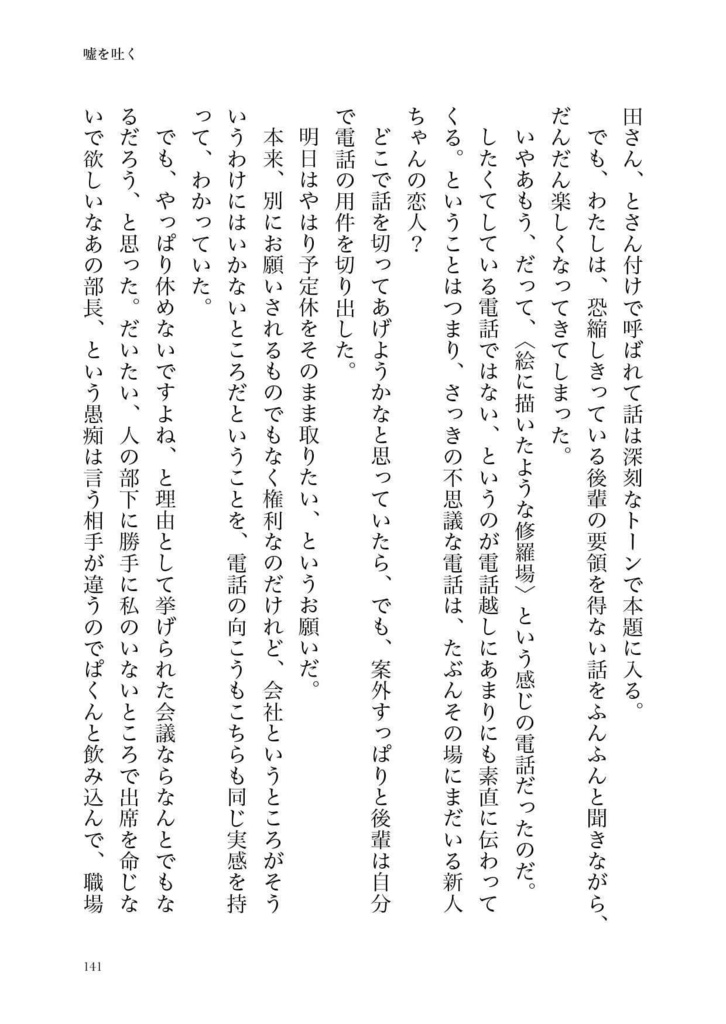 嘘を吐く
田さん、とさん付けで呼ばれて話は深刻なトーンで本題に入る。
でも、わたしは、恐縮しきっている後輩の要領を得ない話をふんふんと聞きながら、
だんだん楽しくなってきてしまった。
いやあもう、だって、〈絵に描いたような修羅場〉という感じの電話だったのだ。
したくてしている電話ではない、というのが電話越しにあまりにも素直に伝わって
くる。ということはつまり、さっきの不思議な電話は、たぶんその場にまだいる新人
ちゃんの恋人？
どこで話を切ってあげようかなと思っていたら、でも、案外すっぱりと後輩は自分
で電話の用件を切り出した。
明日はやはり予定休をそのまま取りたい、というお願いだ。
本来、別にお願いされるものでもなく権利なのだけれど、会社というところがそう
いうわけにはいかないところだということを、電話の向こうもこちらも同じ実感を持
って、わかっていた。
でも、やっぱり休めないですよね、と理由として挙げられた会議ならなんとでもな
るだろう、と思った。だいたい、人の部下に勝手に私のいないところで出席を命じな
いで欲しいなあの部長、という愚痴は言う相手が違うのでぱくんと飲み込んで、職場
141